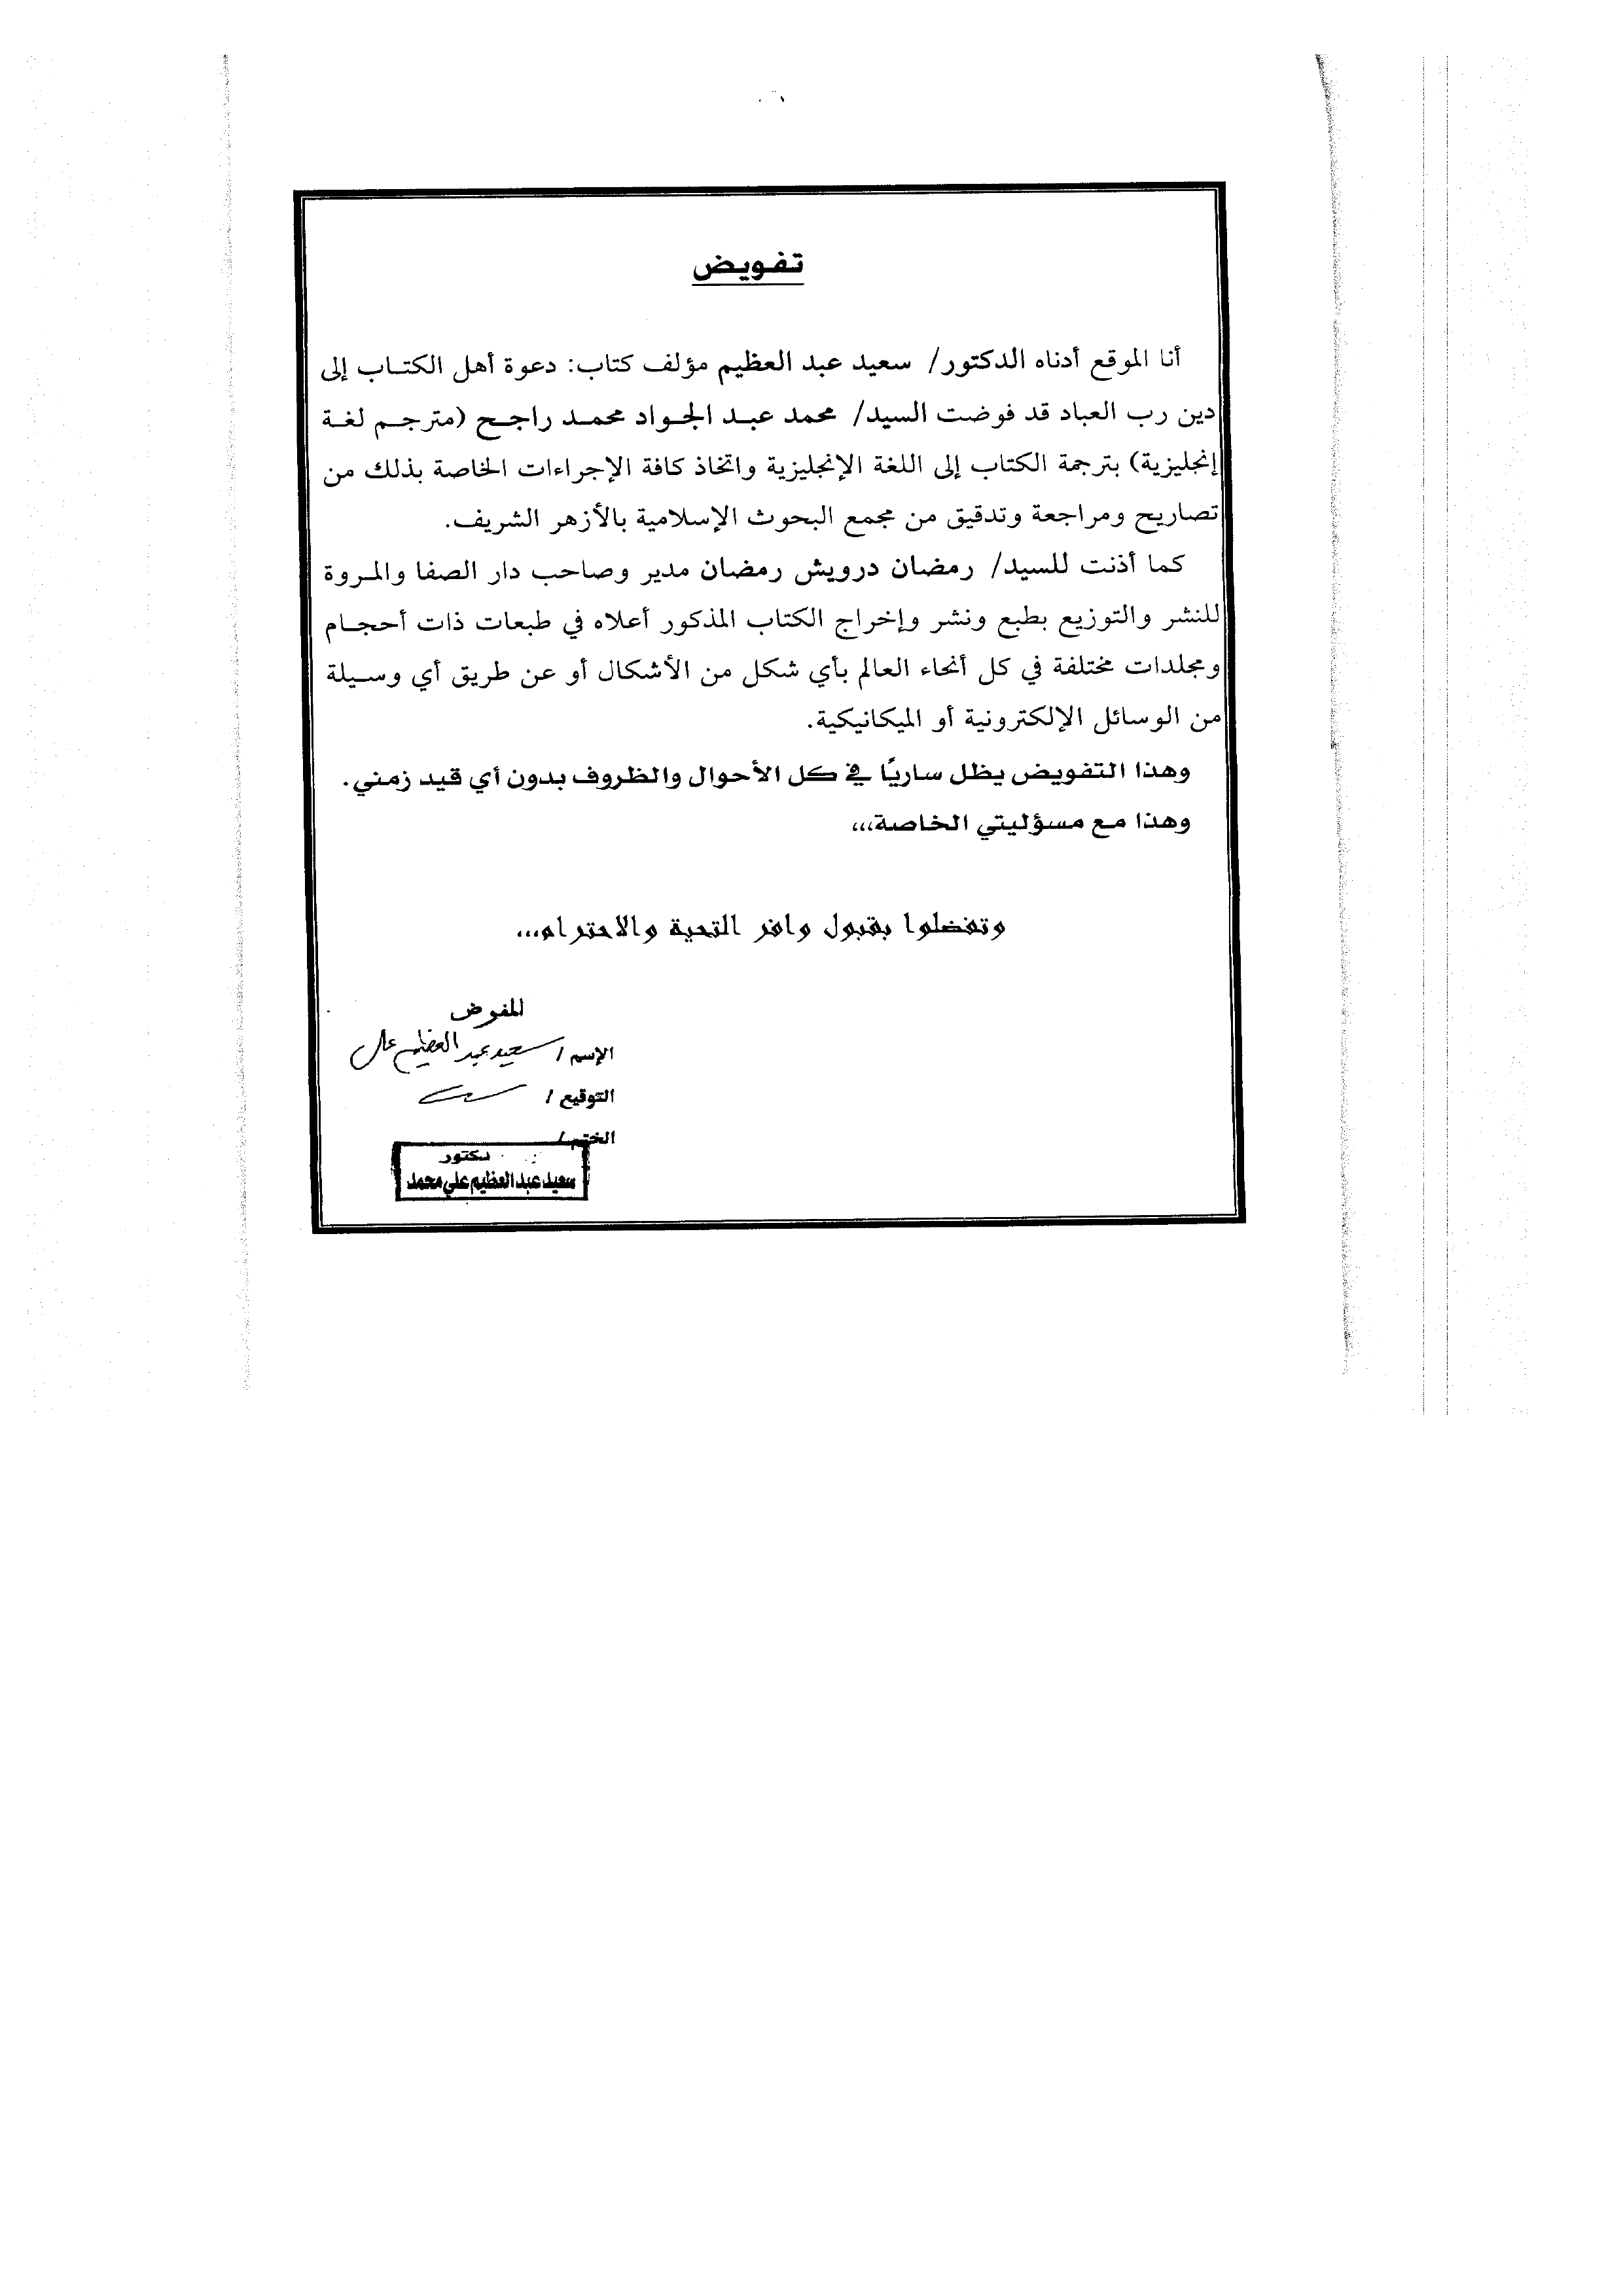 تفويض
أنا الموقع أدناه الدكتور/ سعيد عبد العظيم مؤلف كتاب: دعوة أهل الكتاب إلى
دين رب العباد قد فوضت السيد/ محمد عبد الجواد محمد راجح (مترجم لغة
إنجليزية) بترجمة الكتاب إلى اللغة الإنجليزية واتخاذ كافة الإجراءات الخاصة بذلك من
تصاريح ومراجعة وتدقيق من مجمع البحوث الإسلامية بالأزهر الشريف.
كما أذنت للسيد/ رمضان درويش رمضان مدير وصاحب دار الصفا والمروة
للنشر والتوزيع بطبع ونشر وإخراج الكتاب المذكور أعلاه في طبعات ذات أحجام
ومجلدات مختلفة في كل أنحاء العالم بأي شكل من الأشكال أو عن طريق أي وسيلة
من الوسائل الإلكترونية أو الميكانيكية.
وهذا التفويض يظل ساريًا في كل الأحوال والظروف بدون أي قيد زمني.
وهذا مع مسؤليتي الخاصة،،،
وتفضلوا بقبول وافر التحية والاحترام...
المفوض
الإسم / سعيد عبد العظيم على
التوقيع /
الختم /
دكتور
سعيد عبد العظيم علي محمد